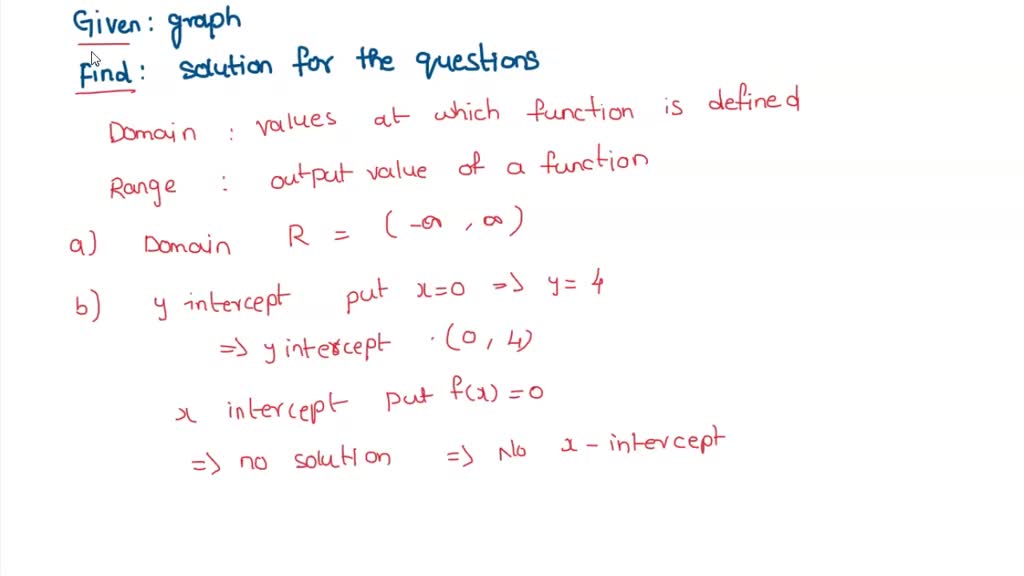 Given: graph
Find: solution for the questions
Domain : values at which function is defined
Range : output value of a function
a) Domain R = (-∞, ∞)
b) y intercept put x=0 => y= 4
=> y intercept . (0, 4)
x intercept put f(x) = 0
=> no solution => No x - intercept